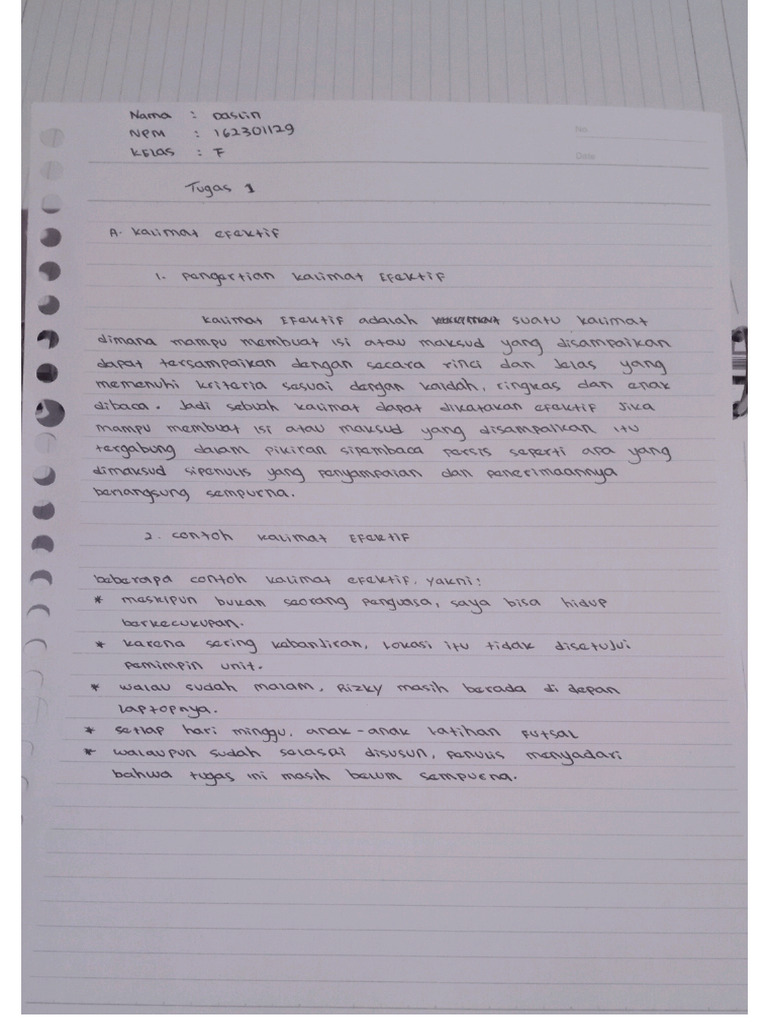 Nama : Daslin
NPM : 162301129
Kelas : F
No
Date
Tugas 1
A. Kalimat efektif
1. Pengertian kalimat Efektif
Kalimat Efektif adalah suatu kalimat
dimana mampu membuat isi atau maksud yang disampaikan
dapat tersampaikan dengan secara rinci dan jelas yang
memenuhi kriteria sesuai dengan kaidah, ringkas dan enak
dibaca. Jadi sebuah kalimat dapat dikatakan efektif jika
mampu membuat isi atau maksud yang disampaikan itu
tergabung dalam pikiran sipembaca persis seperti apa yang
dimaksud sipenulis yang penyampaian dan penerimaannya
berlangsung sempurna.
2. Contoh kalimat Efektif
beberapa contoh kalimat efektif, yakni:
* meskipun bukan seorang penguasa, saya bisa hidup
berkecukupan.
* karena sering kebanjiran, lokasi itu tidak disetujui
pemimpin unit.
* walau sudah malam, Rizky masih berada di depan
laptopnya.
* setiap hari minggu, anak-anak latihan futsal
* walaupun sudah selesai disusun, penulis menyadari
bahwa tugas ini masih belum sempurna.